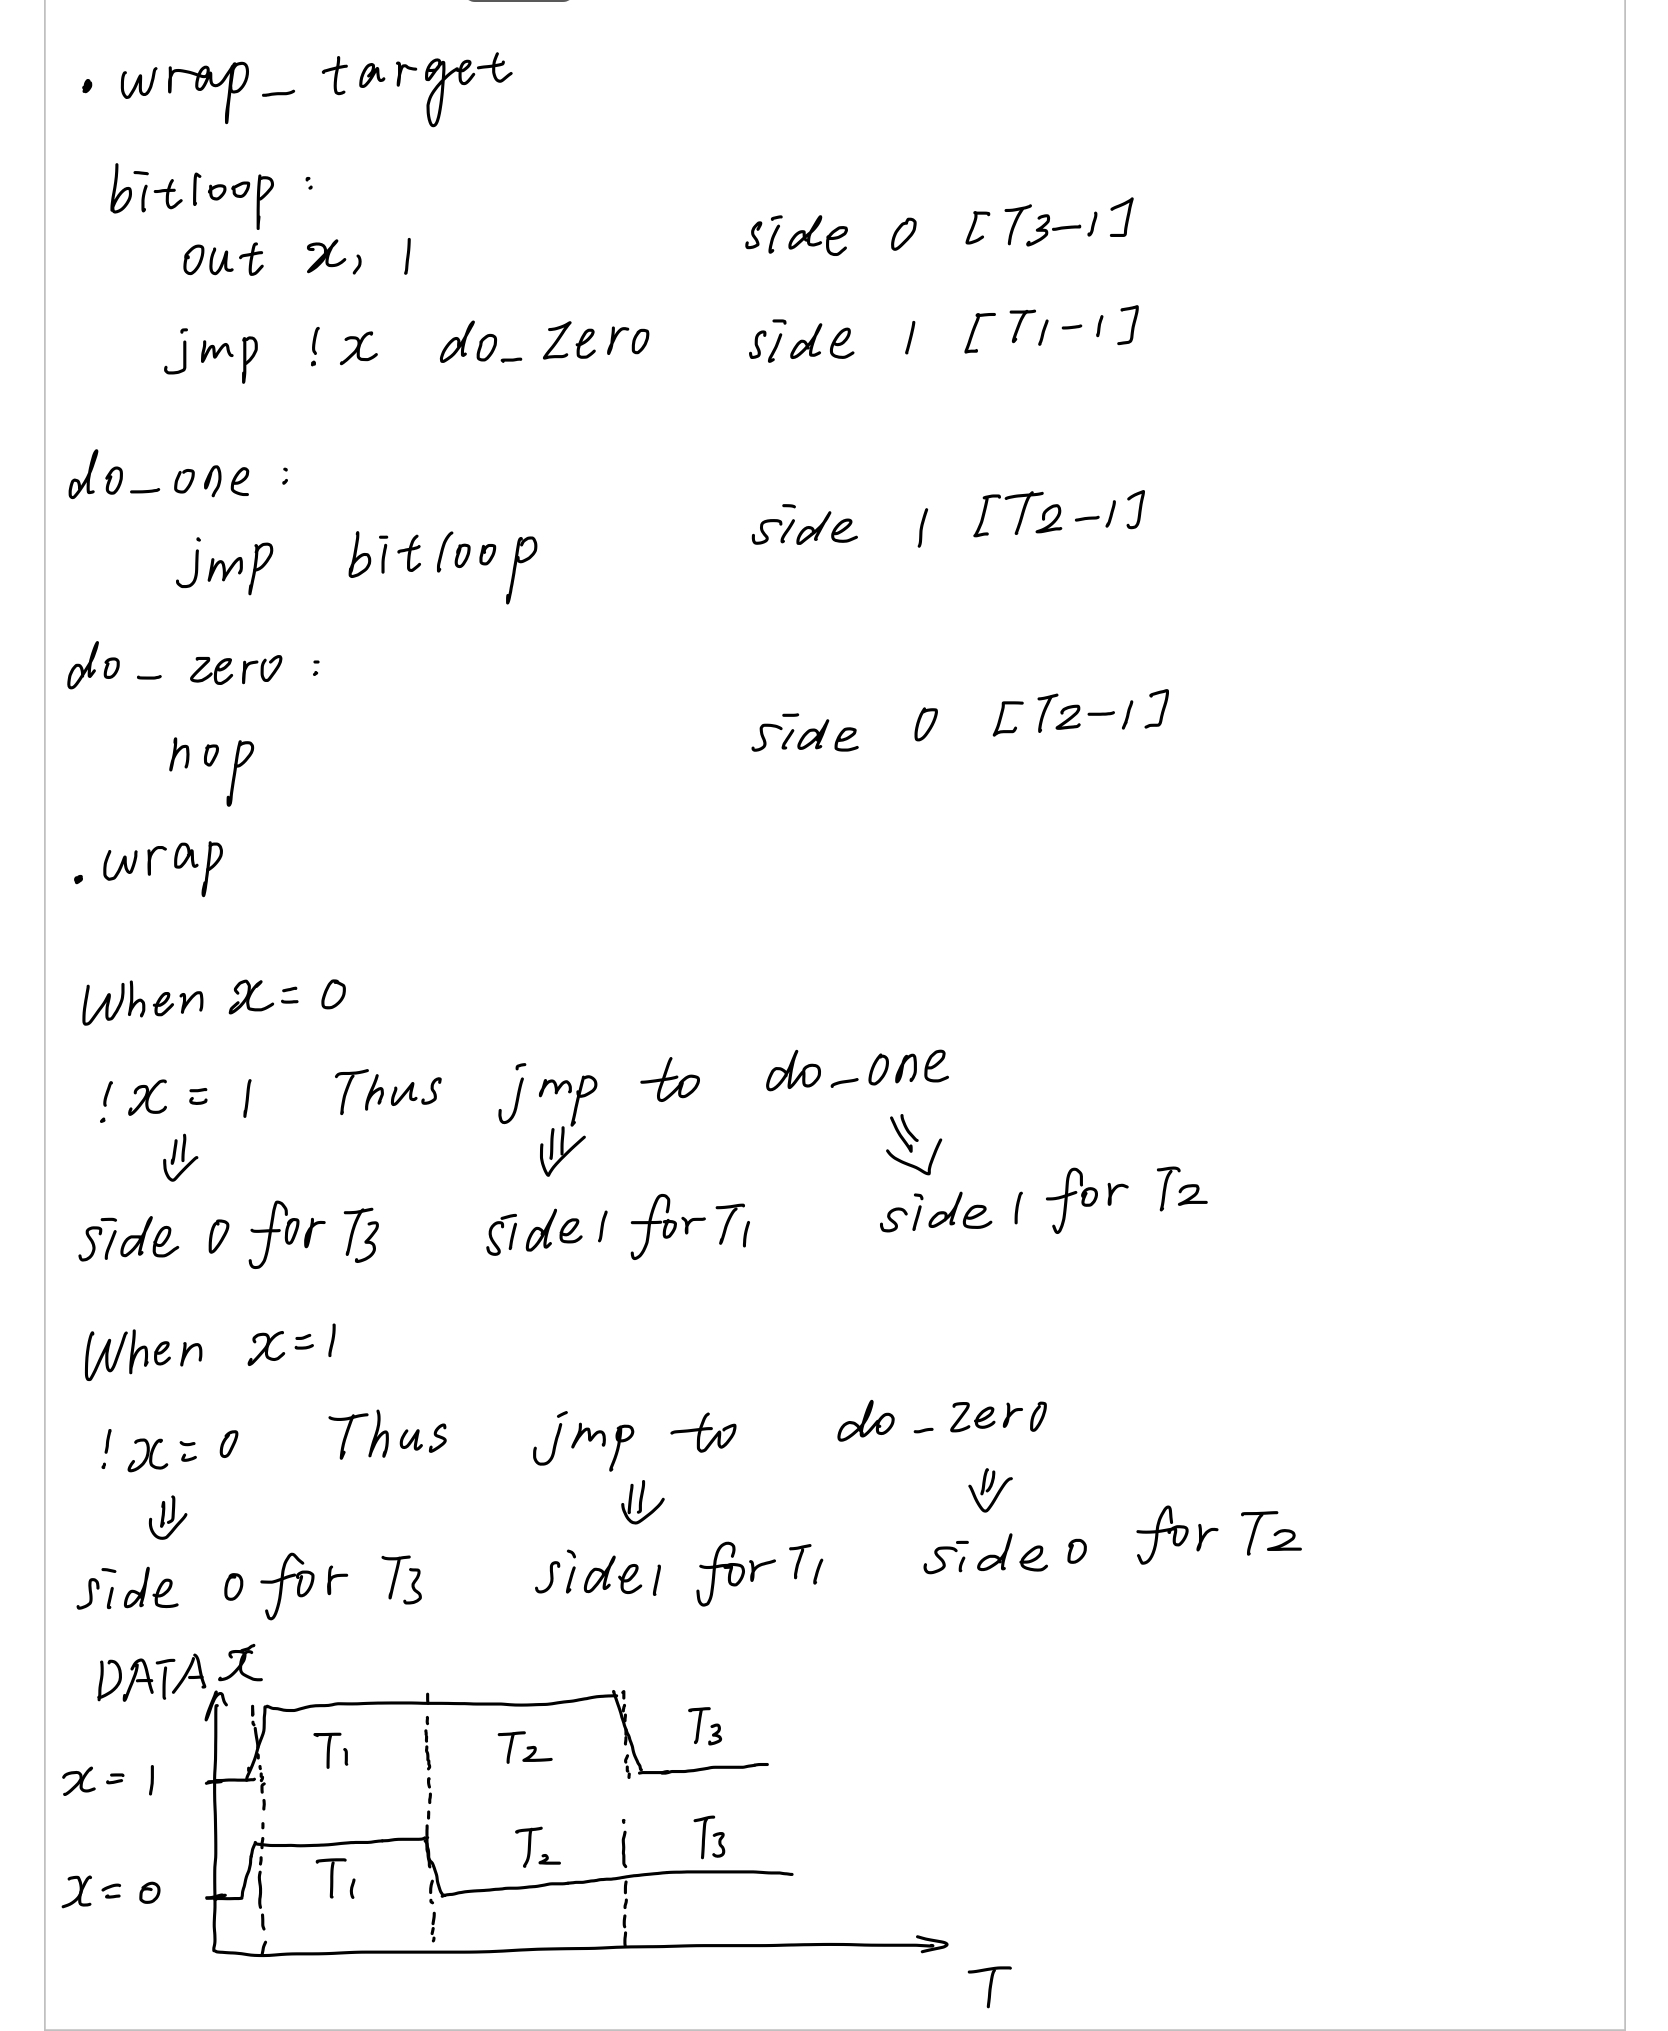 .wrap_target
bitloop:
out x, 1 side 0 [T3-1]
jmp !x do_zero side 1 [T1-1]
do_one:
jmp bitloop side 1 [T2-1]
do_zero:
nop side 0 [T2-1]
.wrap
When x=0
!x=1 Thus jmp to do_one
⇓ ⇓ ⇓
side 0 for T3 side1 for T1 side1 for T2
When x=1
!x=0 Thus jmp to do_zero
⇓ ⇓ ⇓
side 0 for T3 side1 for T1 side0 for T2
DATA x
x=1 T1 T2 T3
x=0 T1 T2 T3
T